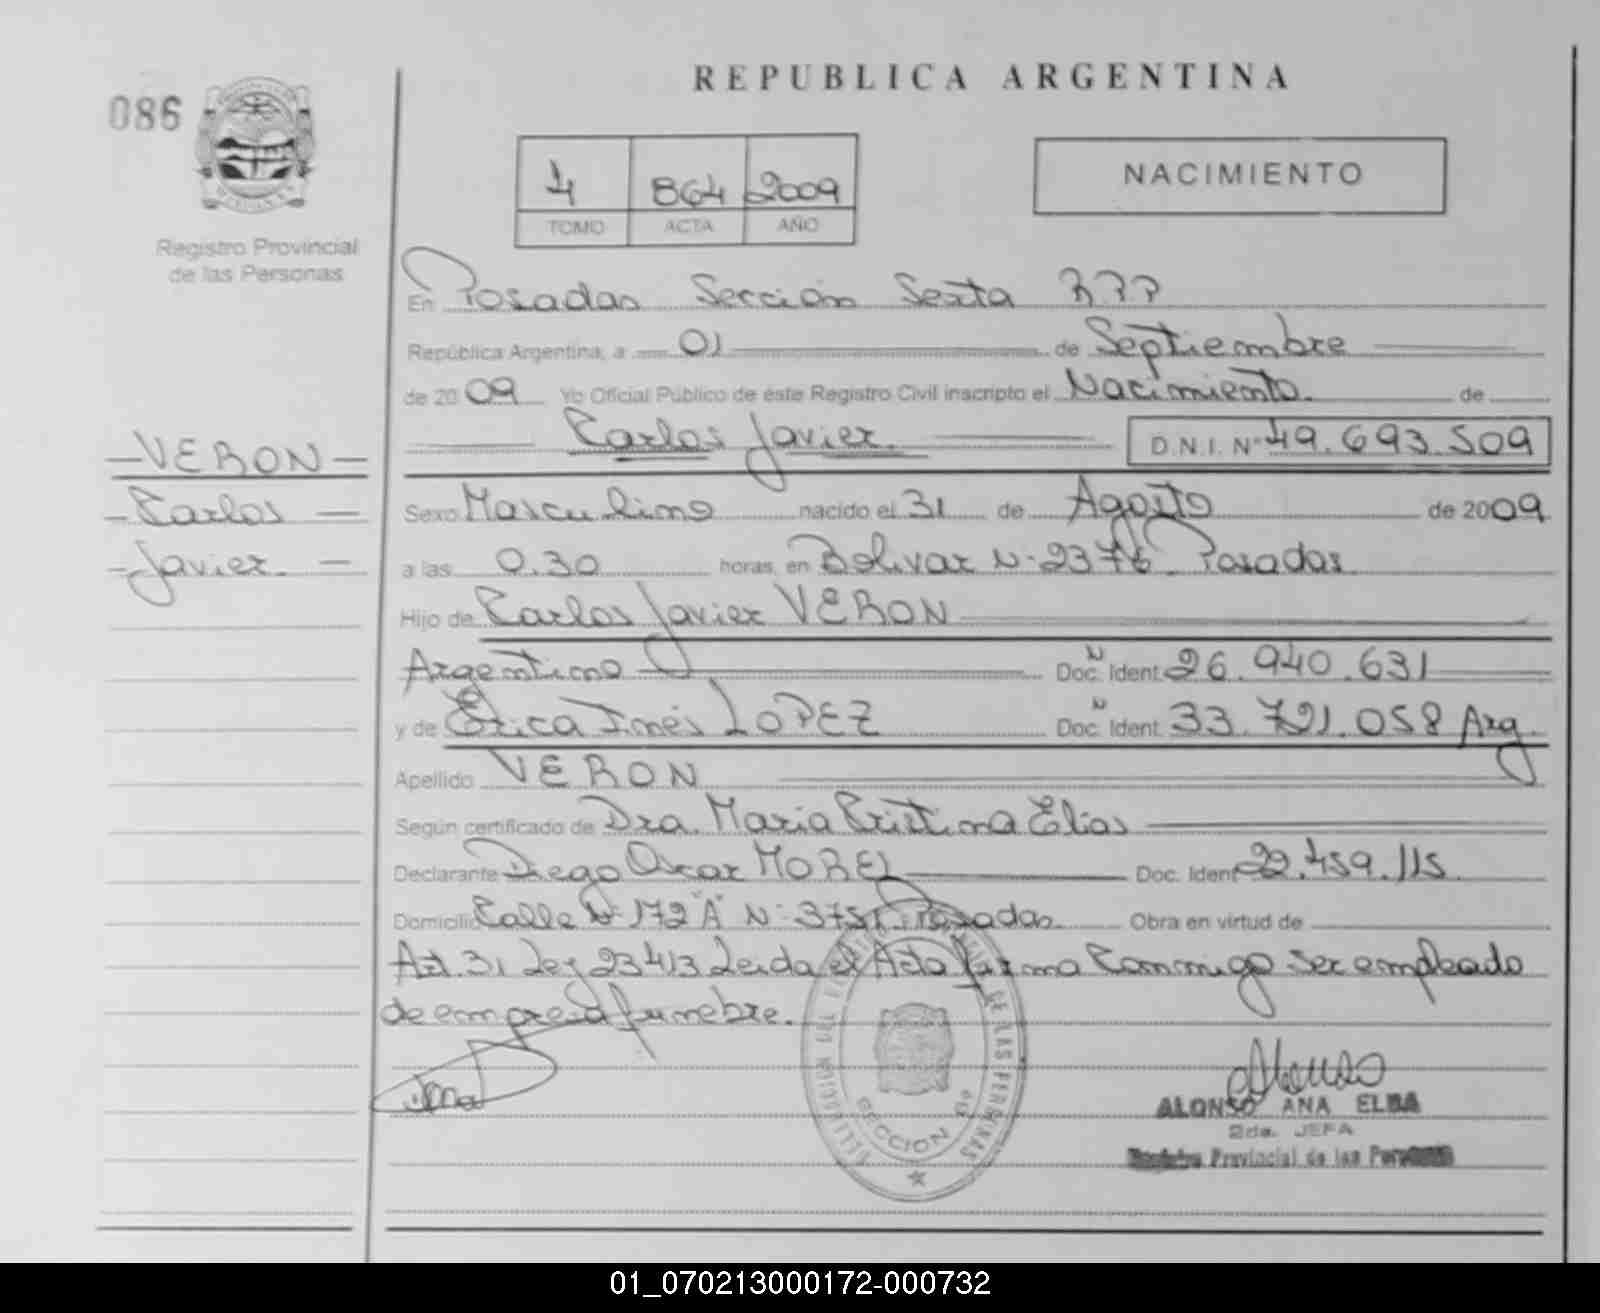 REPUBLICA ARGENTINA
086
4 864 2009
TOMO ACTA AÑO
NACIMIENTO
Registro Provincial
de las Personas
En Posadas Sección Sexta R.P.P
República Argentina, a 01 de Septiembre
de 2009 Yo Oficial Público de éste Registro Civil inscripto el Nacimiento. de
Carlos Javier. D.N.I. Nº 49.693.509
VERON
Carlos
Javier.
Sexo Masculino nacido el 31 de Agosto de 2009
a las 0.30 horas, en Bolivar Nº 2376 Posadas
Hijo de Carlos Javier VERON
Argentino Doc. Ident. Nº 26.940.631
y de Erica Inés LOPEZ Doc. Ident. Nº 33.721.058 Arg.
Apellido VERON
Según certificado de Dra. Maria Cristina Elias
Declarante Diego Oscar MOREL Doc. Ident. 22.459.115
Domicilio Calle Nº 172 "A" Nº 3751 Posadas. Obra en virtud de
Art. 31 Ley 23413 Leida el Acta firma Conmigo ser empleado
de empresa funebre.
DE LAS PERSONAS
SECCION 6ª
ALONSO ANA ELBA
2da. JEFA
Registro Provincial de las Personas
01_070213000172-000732